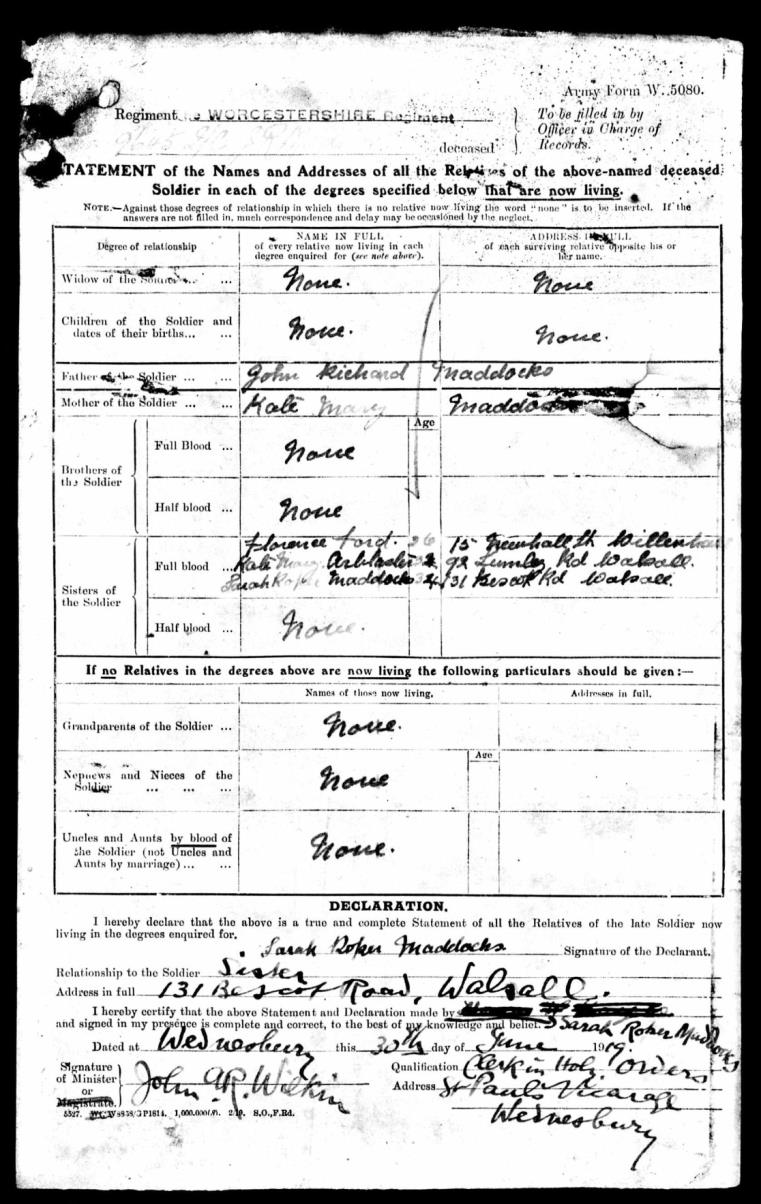 Army Form W. 5080.
Regiment WORCESTERSHIRE Regiment
To be filled in by
Officer in Charge of
Records.
deceased
STATEMENT of the Names and Addresses of all the Relatives of the above-named deceased
Soldier in each of the degrees specified below that are now living.
NOTE.—Against those degrees of relationship in which there is no relative now living the word "none" is to be inserted. If the
answers are not filled in, much correspondence and delay may be occasioned by the neglect.
Degree of relationship
NAME IN FULL
of every relative now living in each
degree enquired for (see note above).
ADDRESS IN FULL
of each surviving relative opposite his or
her name.
Widow of the Soldier ... ... None. None
Children of the Soldier and
dates of their births... ... None. None.
Father of the Soldier ... ... John Richard Maddocks
Mother of the Soldier ... ... Kate Mary Maddocks
Age
Brothers of
the Soldier
Full Blood ... None
Half blood ... None
Sisters of
the Soldier
Full blood ...
Florence Ford. 26 15 Greenhall St Willenhall
Kate Mary Arblaster 92 Lumley Rd Walsall.
Sarah Roper Maddocks 34 131 Bescot Rd Walsall
Half blood ... None.
If no Relatives in the degrees above are now living the following particulars should be given:—
Names of those now living. Addresses in full.
Grandparents of the Soldier ... None.
Age
Nephews and Nieces of the
Soldier ... ... ... None
Uncles and Aunts by blood of
the Soldier (not Uncles and
Aunts by marriage) ... ... None.
DECLARATION.
I hereby declare that the above is a true and complete Statement of all the Relatives of the late Soldier now
living in the degrees enquired for.
Sarah Roper Maddocks Signature of the Declarant.
Relationship to the Soldier Sister
Address in full 131 Bescot Road, Walsall.
I hereby certify that the above Statement and Declaration made by
and signed in my presence is complete and correct, to the best of my knowledge and belief. Sarah Roper Maddocks
Dated at Wednesbury this 30th day of June 1919.
Signature
of Minister
or
Magistrate.
John A.R. Wilkin
Qualification Clerk in Holy Orders
Address St Pauls Vicarage
Wednesbury
5527. 1,000,000 2/19. S.O.,F.Rd.